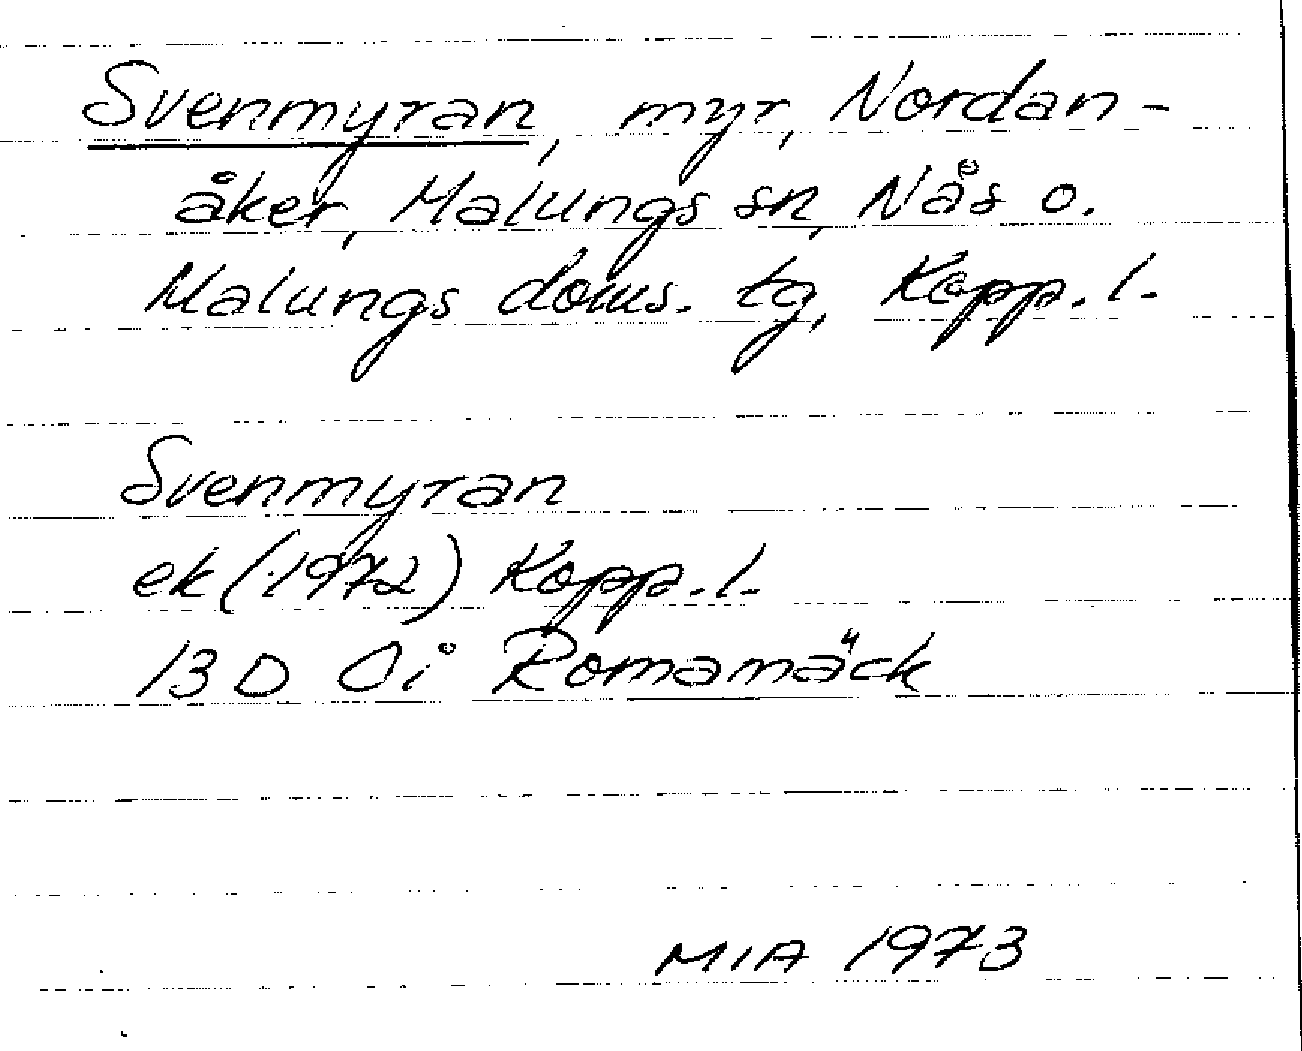 Svenmyran, myr, Nordan-
åker, Malungs sn, Nås o.
Malungs doms. tg, Kopp. l.
Svenmyran
ek (1972) Kopp. l.
13 D Oi Romamäck
MIA 1973